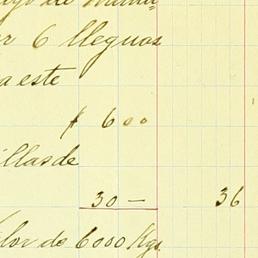 de
6 lleguos
a este
$ 600
illas de
30 — 36
lor de 6000 Kgs